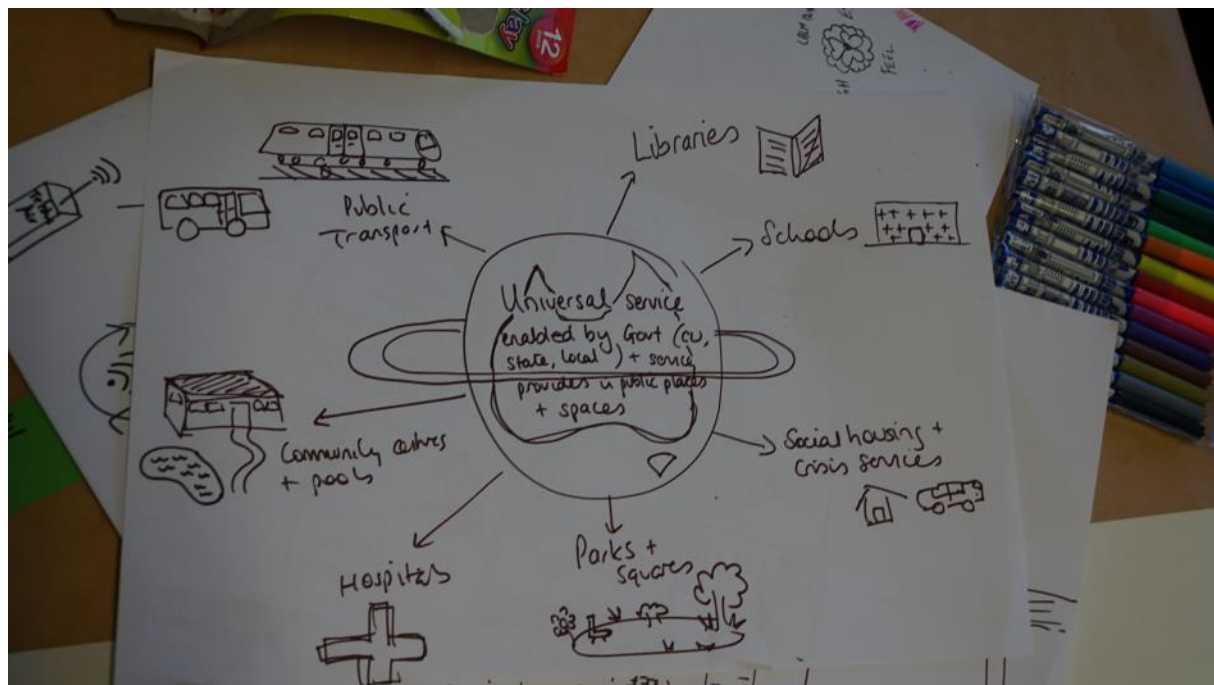 12
CALM
FEEL
Libraries
Public
Transport
Schools
Universal service
enabled by Govt (cw,
state, local) + service
providers in public places
+ spaces
Community centres
+ pools
Social housing +
crisis services
Hospitals
Parks +
squares